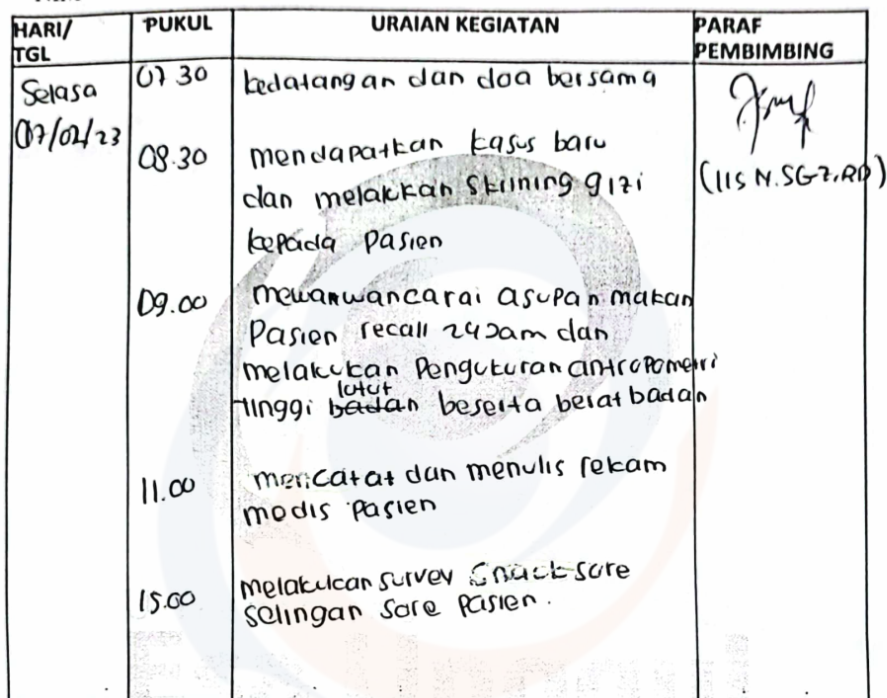 HARI/
TGL
PUKUL
URAIAN KEGIATAN
PARAF
PEMBIMBING
Selasa
07/02/23
07 30
kedatangan dan doa bersama
08.30
mendapatkan kasus baru
dan melakkan skrining gizi
kepada Pasien
(IIS N.SGz,RD)
09.00
mewanwancarai asupan makan
Pasien recall 24 Jam dan
melakukan Pengukuran antropometri
tinggi badan lutut beserta berat badan
11.00
mencatat dan menulis rekam
medis Pasien
15.00
melakukan survey Snack sore
selingan sore pasien.